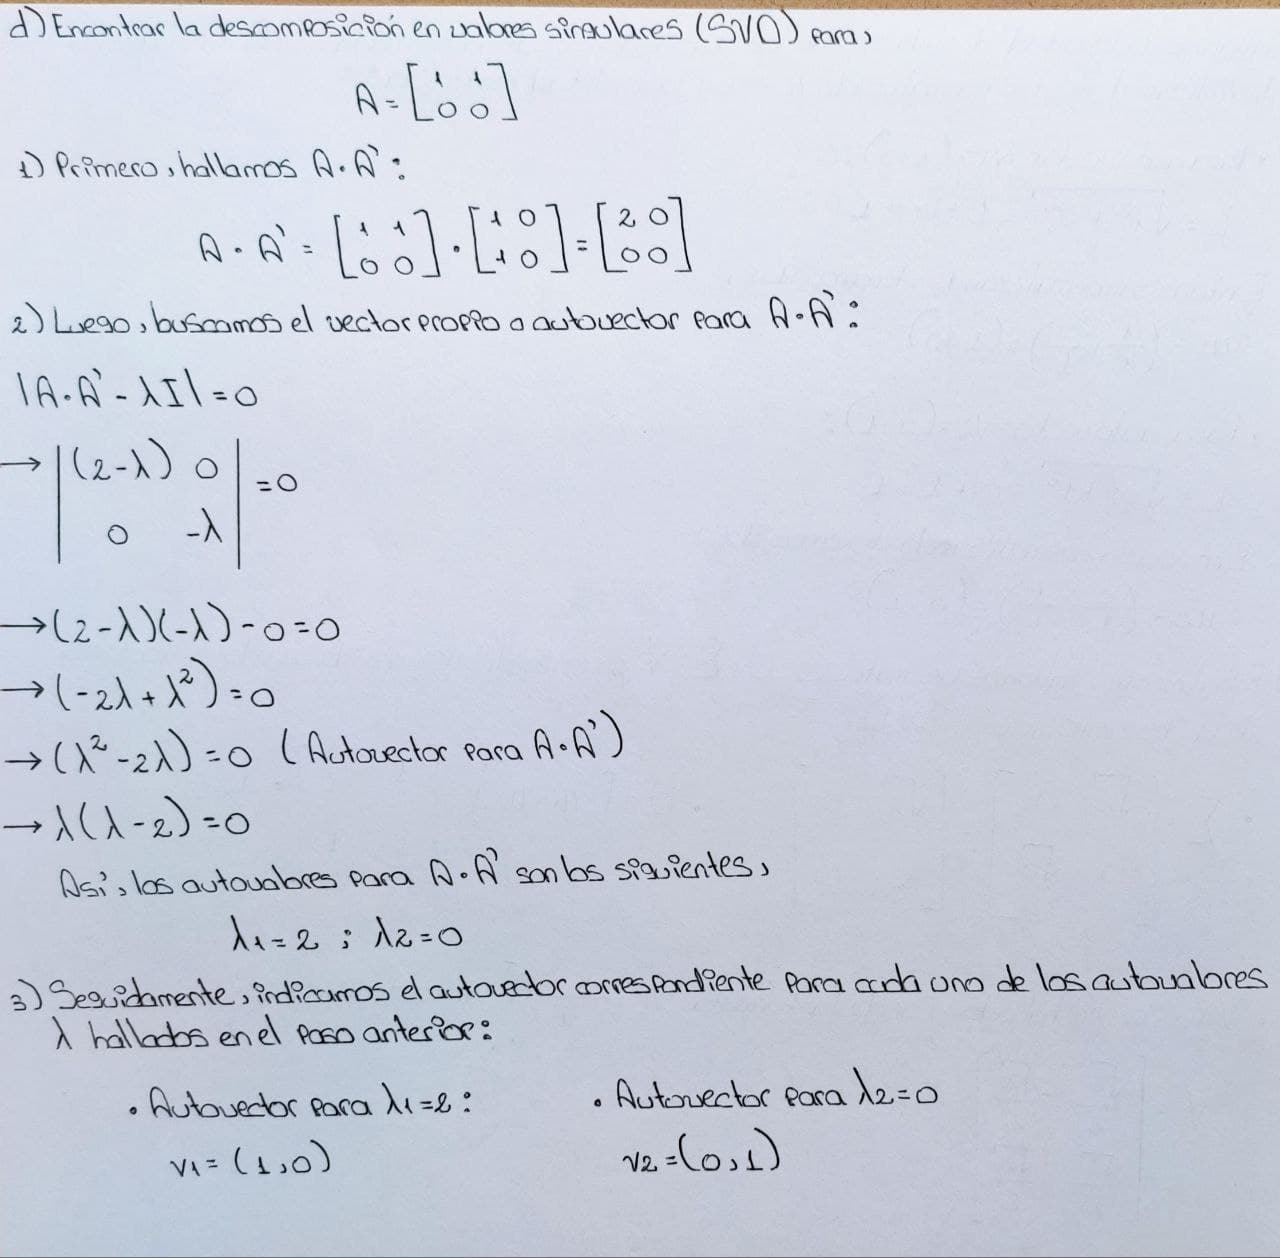 d) Encontrar la descomposición en valores singulares (SVD) para,
A = [1 1; 0 0]
1) Primero, hallamos A·A':
A · A' = [1 1; 0 0] · [1 0; 1 0] = [2 0; 0 0]
2) Luego, buscamos el vector propio o autovector para A·A':
|A·A' - λI| = 0
→ |(2-λ) 0; 0 -λ| = 0
→ (2-λ)(-λ) - 0 = 0
→ (-2λ + λ²) = 0
→ (λ² - 2λ) = 0 (Autovector para A·A')
→ λ(λ-2) = 0
Así, los autovalores para A·A' son los siguientes,
λ1 = 2 ; λ2 = 0
3) Seguidamente, indicamos el autovector correspondiente para cada uno de los autovalores
λ hallados en el paso anterior:
• Autovector para λ1 = 2: • Autovector para λ2 = 0
v1 = (1,0) v2 = (0,1)